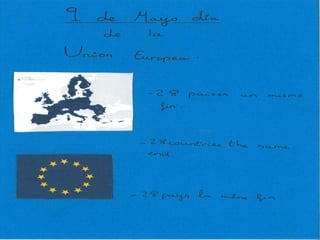 9 de Mayo día
de la
Union Europea.
-28 paises un mismo
fin.
-28 countries the same
end.
-28 pays la même fin